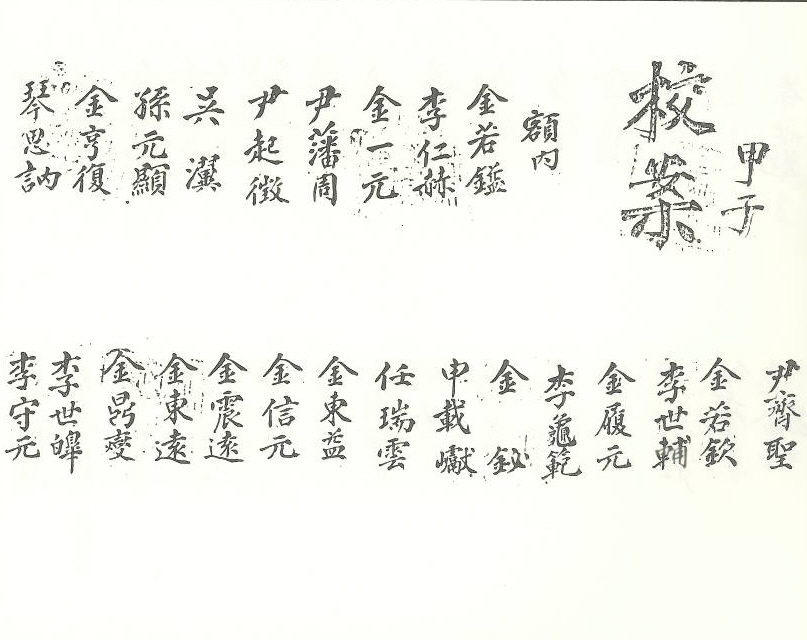 甲子
校案
額內
金若鑑
李仁赫
金一元
尹藩周
尹起徵
吳瀷
孫元顯
金亨復
琴思訥
尹齊聖
金若欽
李世輔
金履元
李龜範
金鉍
申載巘
任瑞雲
金東益
金信元
金震遠
金東遠
金變
李世皥
李守元